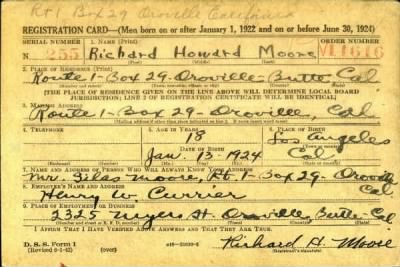 Rt 1 Box 29 Oroville California
REGISTRATION CARD—(Men born on or after January 1, 1922 and on or before June 30, 1924)
SERIAL NUMBER 1. NAME (Print) ORDER NUMBER
N 255 Richard Howard Moore 11616
(First) (Middle) (Last)
2. PLACE OF RESIDENCE (Print)
Route 1-Box 29-Oroville-Butte-Cal
(Number and street) (Town, township, village, or city) (County) (State)
[THE PLACE OF RESIDENCE GIVEN ON THE LINE ABOVE WILL DETERMINE LOCAL BOARD
JURISDICTION; LINE 2 OF REGISTRATION CERTIFICATE WILL BE IDENTICAL]
3. MAILING ADDRESS
Route 1-Box 29-Oroville, Cal
[Mailing address if other than place indicated on line 2. If same insert word same]
4. TELEPHONE 5. AGE IN YEARS 6. PLACE OF BIRTH
18 Los Angeles
DATE OF BIRTH (Town or county)
Jan. 13-1924 Cal
(Exchange) (Number) (Mo.) (Day) (Yr.) (State or country)
7. NAME AND ADDRESS OF PERSON WHO WILL ALWAYS KNOW YOUR ADDRESS
Mr. Giles Moore, Rt. 1-Box 29-Oroville
Cal
8. EMPLOYER'S NAME AND ADDRESS
Henry W. Currier
9. PLACE OF EMPLOYMENT OR BUSINESS
2325 Myers St. Oroville, Butte-Cal
(Number and street or R. F. D. number) (Town) (County) (State)
I AFFIRM THAT I HAVE VERIFIED ABOVE ANSWERS AND THAT THEY ARE TRUE.
D. S. S. Form 1
(Revised 6-9-42) (over)
Richard H. Moore
(Registrant's signature)